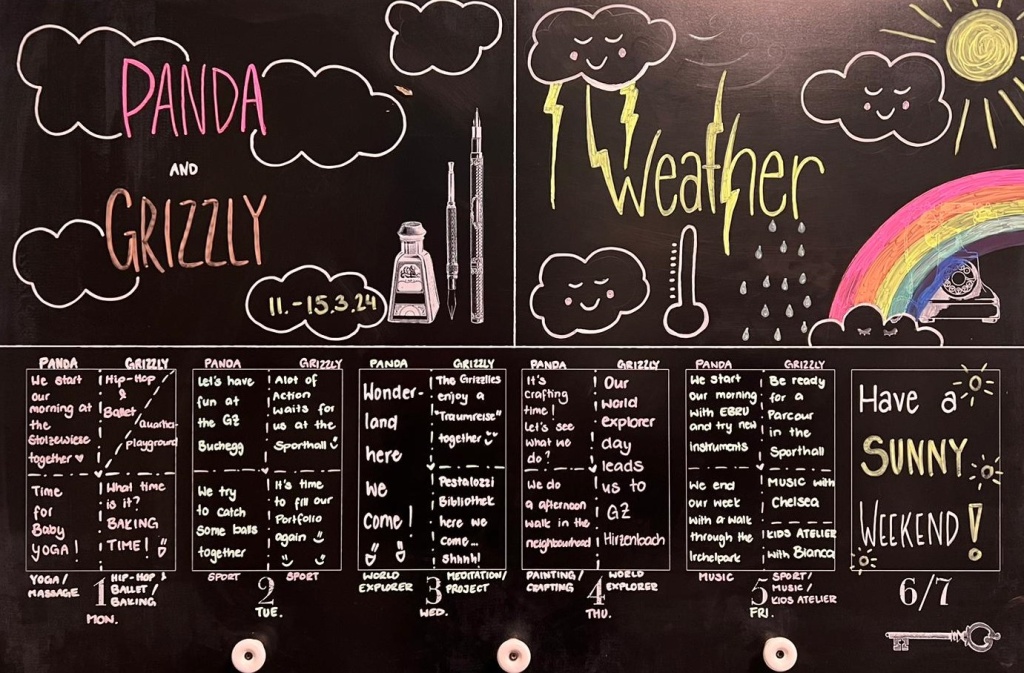 PANDA
AND
GRIZZLY
11.-15.3.24
Weather
PANDA
GRIZZLY
We start
our
morning at
the
Stolzewiese
together
Hip-Hop
&
Ballet
Quartier
playground
Time
for
Baby
YOGA!
What time
is it?
BAKING
TIME!
YOGA/
MASSAGE
1
MON.
HIP-HOP &
BALLET/
BAKING
PANDA
GRIZZLY
Let's have
fun at
the GZ
Buchegg
Alot of
Action
waits for
us at the
Sporthall
We try
to catch
some balls
together
It's time
to fill our
Portfolio
again
SPORT
2
TUE.
SPORT
PANDA
GRIZZLY
Wonder-
land
here
we
come!
The Grizzlies
enjoy a
"Traumreise"
together
Pestalozzi
Bibliothek
here we
come...
Shhhh!
WORLD
EXPLORER
3
WED.
MEDITATION/
PROJECT
PANDA
GRIZZLY
It's
crafting
time!
Let's see
what we
do?
We do
a afternoon
walk in the
neighbourhood
Our
world
explorer
day
leads
us to
GZ
Hirzenbach
PAINTING/
CRAFTING
4
THU.
WORLD
EXPLORER
PANDA
GRIZZLY
We start
our morning
with EBRU
and try new
instruments
Be ready
for a
Parcour
in the
Sporthall
We end
our week
with a walk
through the
Irchelpark
MUSIC with
Chelsea
KIDS ATELIER
with Bianca
MUSIC
5
FRI.
SPORT/
MUSIC/
KIDS ATELIER
Have a
SUNNY
WEEKEND!
6/7